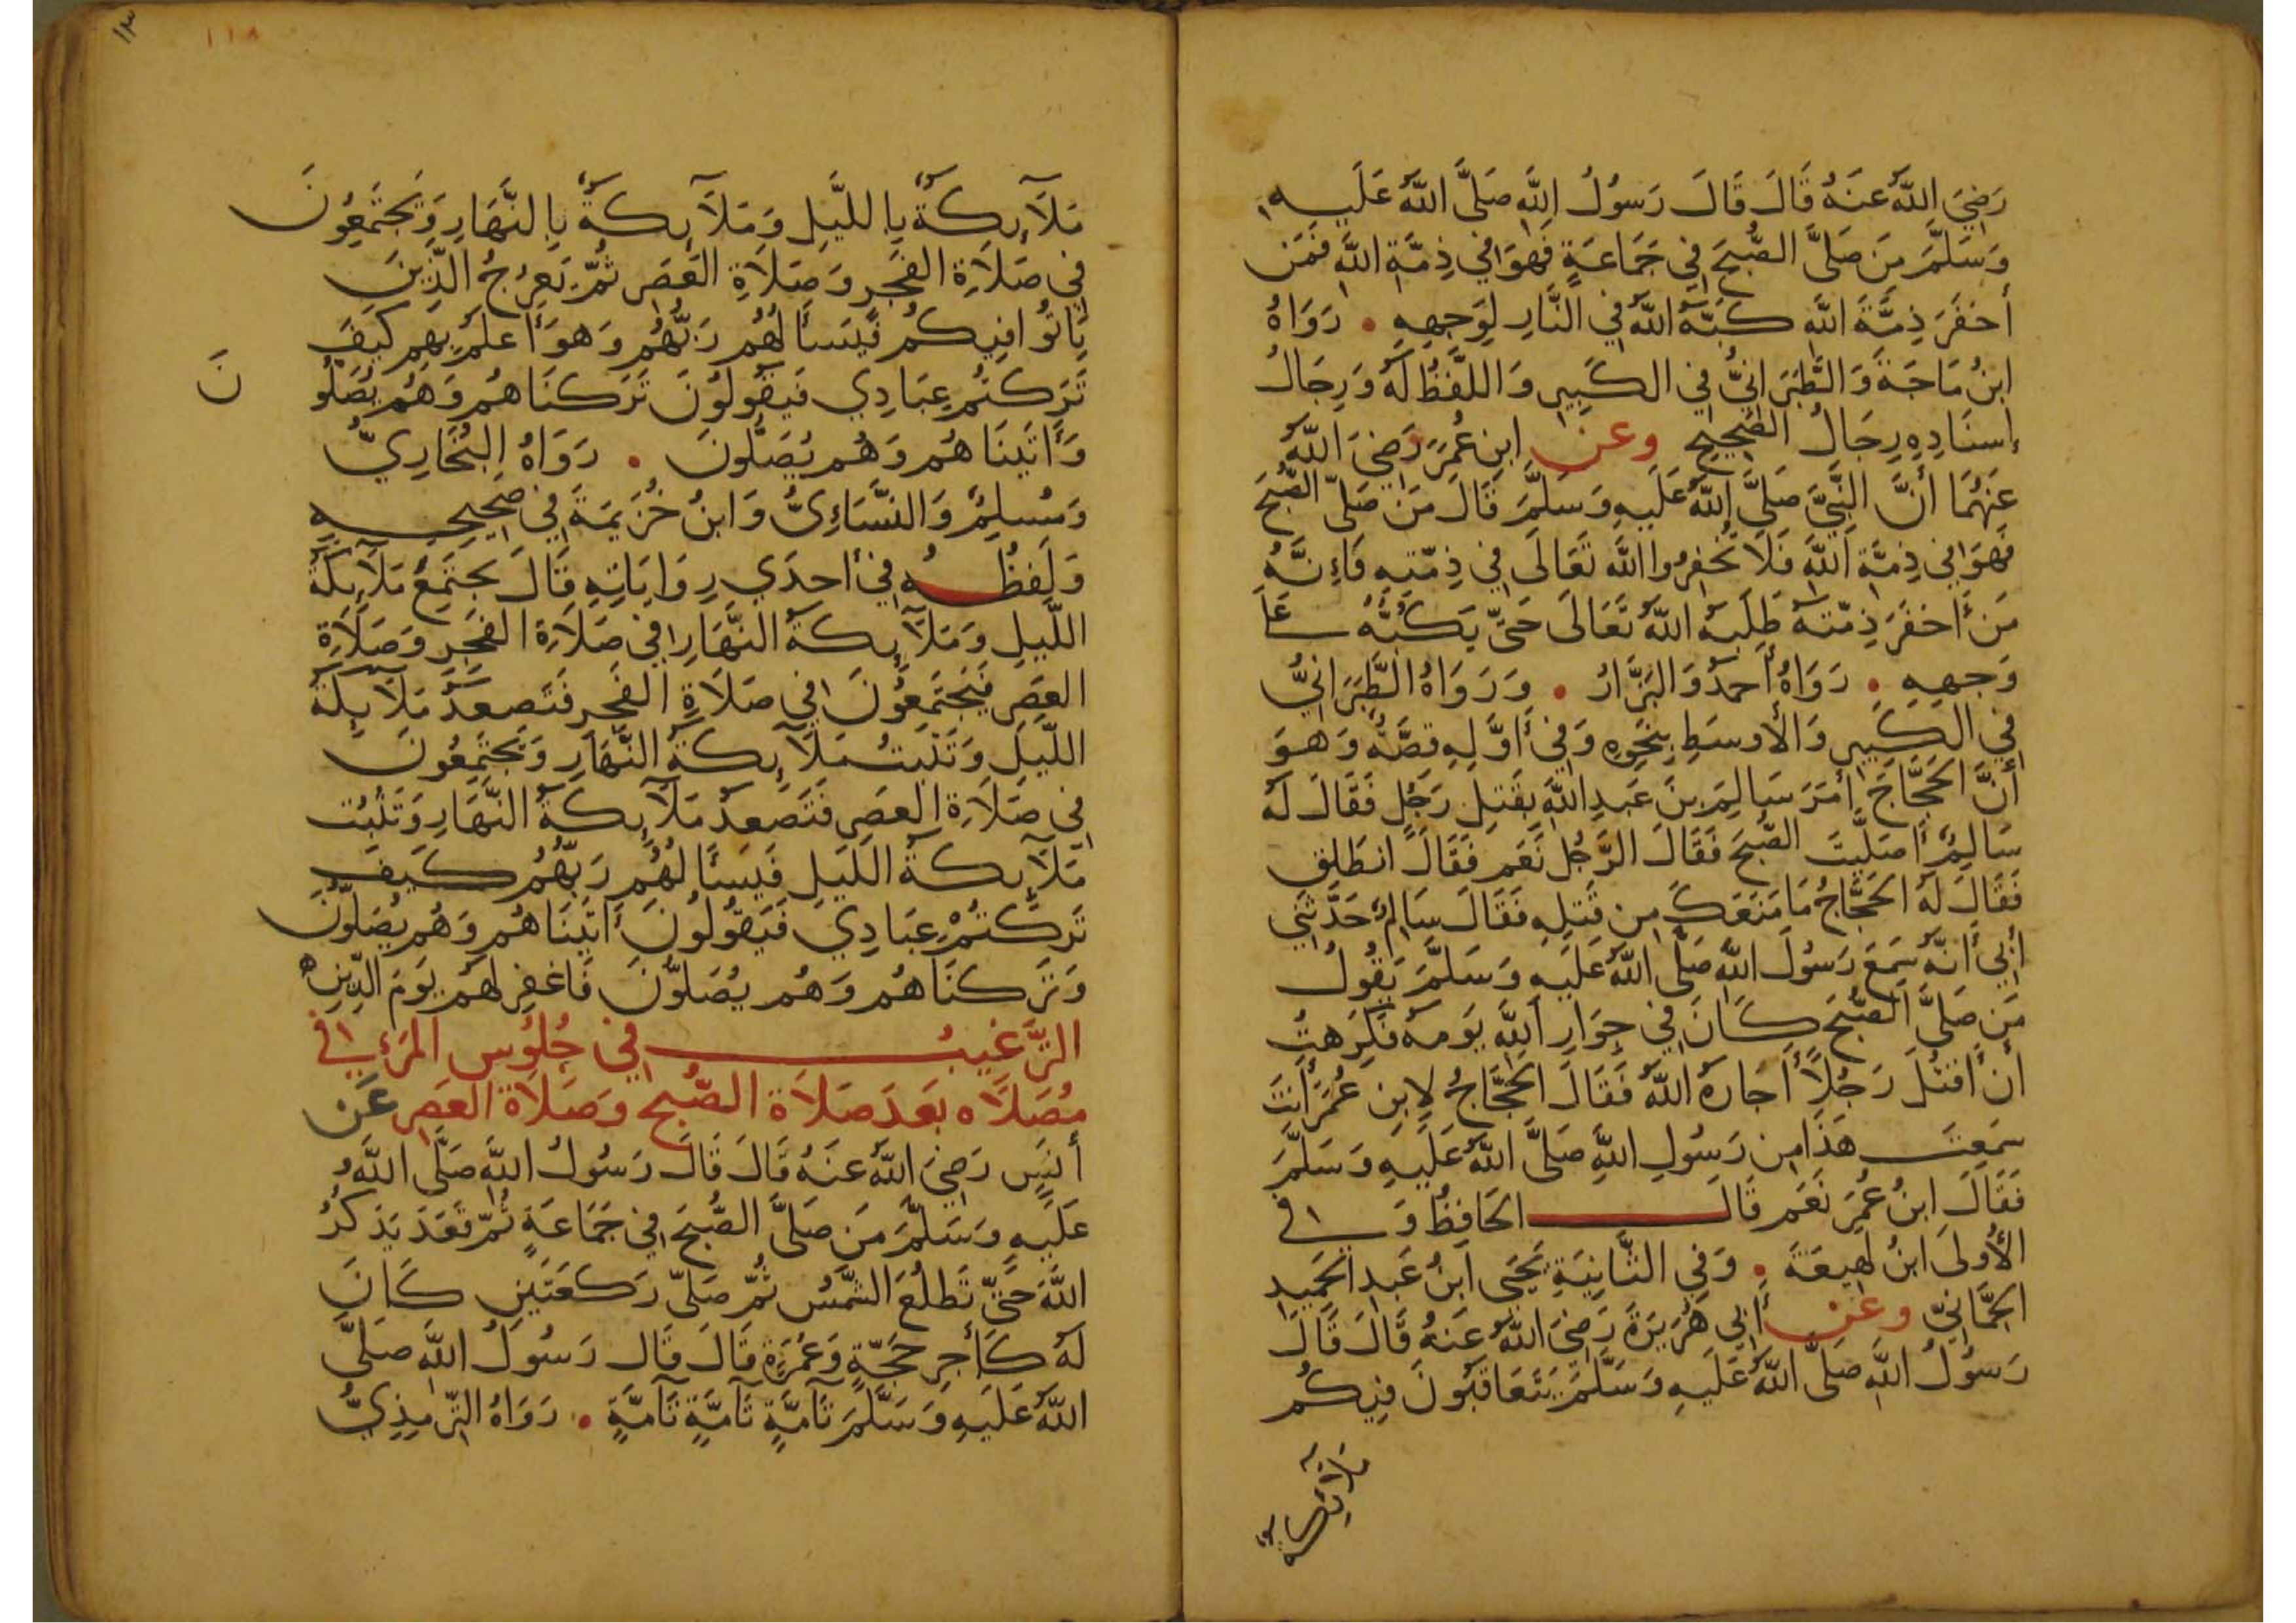 رَضِيَ اللَّهُ عَنهُ قَالَ قَالَ رَسُولُ اللَّهِ صَلَّى اللَّهُ عَلَيهِ
وَسَلَّمَ مَن صَلَّى الصُّبحَ فِي جَمَاعَةٍ فَهوَ فِي ذِمَّةِ اللَّهِ فَمَن
أَخفَرَ ذِمَّةَ اللَّهِ كَبَّهُ اللَّهُ فِي النَّارِ لِوَجهِهِ . رَوَاهُ
ابنُ مَاجَةَ وَالطَّبَرَانِيُّ فِي الكَبِيرِ وَاللَّفظُ لَهُ وَرِجَالُ
إِسنَادِهِ رِجَالُ الصَّحِيحِ وعن ابنِ عُمَرَ رَضِيَ اللَّهُ
عَنهُمَا أَنَّ النَّبِيَّ صَلَّى اللَّهُ عَلَيهِ وَسَلَّمَ قَالَ مَن صَلَّى الصُّبحَ
فَهوَ فِي ذِمَّةِ اللَّهِ فَلَا تُخفِرُوا اللَّهَ تَعَالَى فِي ذِمَّتِهِ فَإِنَّهُ
مَن أَخفَرَ ذِمَّتَهُ طَلَبَهُ اللَّهُ تَعَالَى حَتَّى يَكُبَّهُ عَلَى
وَجهِهِ . رَوَاهُ أَحمَدُ وَالبَزَّارُ . وَرَوَاهُ الطَّبَرَانِيُّ
فِي الكَبِيرِ وَالأَوسَطِ بِنَحوِهِ وَفِي أَوَّلِهِ قِصَّةٌ وَهوَ
أَنَّ الحَجَّاجَ أَمَرَ سَالِمَ بنَ عَبدِ اللَّهِ بِقَتلِ رَجُلٍ فَقَالَ لَهُ
سَالِمٌ أَصَلَّيتَ الصُّبحَ فَقَالَ الرَّجُلُ نَعَم فَقَالَ انطَلِق
فَقَالَ لَهُ الحَجَّاجُ مَا مَنَعَكَ مِن قَتلِهِ فَقَالَ سَالِمٌ حَدَّثَنِي
أَبِي أَنَّهُ سَمِعَ رَسُولَ اللَّهِ صَلَّى اللَّهُ عَلَيهِ وَسَلَّمَ يَقُولُ
مَن صَلَّى الصُّبحَ كَانَ فِي جِوَارِ اللَّهِ يَومَهُ فَكَرِهتُ
أَن أَقتُلَ رَجُلًا أَجَارَهُ اللَّهُ فَقَالَ الحَجَّاجُ لِابنِ عُمَرَ أَنتَ
سَمِعتَ هَذَا مِن رَسُولِ اللَّهِ صَلَّى اللَّهُ عَلَيهِ وَسَلَّمَ
فَقَالَ ابنُ عُمَرَ نَعَم قَالَ الحَافِظُ وَفِي
الأُولَى ابنُ لَهِيعَةَ . وَفِي الثَّانِيَةِ يَحيَى ابنُ عَبدِ الحَمِيدِ
الحِمَّانِيّ وعن أَبِي هُرَيرَةَ رَضِيَ اللَّهُ عَنهُ قَالَ قَالَ
رَسُولُ اللَّهِ صَلَّى اللَّهُ عَلَيهِ وَسَلَّمَ يَتَعَاقَبُونَ فِيكُم
ملائكة
١١٨
مَلَآئِكَةٌ بِاللَّيلِ وَمَلَآئِكَةٌ بِالنَّهَارِ وَيَجتَمِعُونَ
فِي صَلَاةِ الفَجرِ وَصَلَاةِ العَصرِ ثُمَّ يَعرُجُ الَّذِينَ
بَاتُوا فِيكُم فَيَسأَلُهُم رَبُّهُم وَهوَ أَعلَمُ بِهِم كَيفَ
تَرَكتُم عِبَادِي فَيَقُولُونَ تَرَكنَاهُم وَهُم يُصَلُّونَ
وَأَتَينَاهُم وَهُم يُصَلُّونَ . رَوَاهُ البُخَارِيُّ
وَمُسلِمٌ وَالنَّسَائِيُّ وَابنُ خُزَيمَةَ فِي صَحِيحِهِ
وَلَفظُهُ فِي أحدَي رِوَايَاتِهِ قَالَ يجتَمِعُ مَلَآئِكَةُ
اللَّيلِ وَمَلَآئِكَةُ النَّهَارِ فِي صَلَاةِ الفَجرِ وَصَلَاةِ
العَصرِ فَيَجتَمِعُونَ فِي صَلَاةِ الفَجرِ فَتَصعَدُ مَلَآئِكَةُ
اللَّيلِ وَتَثبُتُ مَلَآئِكَةُ النَّهَارِ وَيَجتَمِعُونَ
فِي صَلَاةِ العَصرِ فَتَصعَدُ مَلَآئِكَةُ النَّهَارِ وَتَثبُت
مَلَآئِكَةُ اللَّيلِ فَيَسأَلُهُم رَبُّهُم كَيفَ
تَرَكتُمْ عِبَادِي فَيَقُولُونَ أَتَينَاهُم وَهُم يُصَلُّونَ
وَتَرَكنَاهُم وَهُم يُصَلُّونَ فَاغفِر لَهُم يَومَ الدِّينِ ه
التَّرغِيبُ فِي جُلُوسِ المَرءِ فِي
مُصَلَّاه بَعدَ صَلَاة الصُّبحِ وَصَلَاة العَصرِ عَن
أَنَسٍ رَضِيَ اللَّهُ عَنهُ قَالَ قَالَ رَسُولُ اللَّهِ صَلَّى اللَّهُ
عَلَيهِ وَسَلَّمَ مَن صَلَّى الصُّبحَ فِي جَمَاعَةٍ ثُمَّ قَعَدَ يَذكُرُ
اللَّهَ حَتَّى تَطلُعَ الشَّمسُ ثُمَّ صَلَّى رَكعَتَينِ كَانَ
لَهُ كَأَجرِ حَجَّةٍ وَعُمرَةٍ قَالَ قَالَ رَسُولُ اللَّهِ صَلَّى
اللَّهُ عَلَيهِ وَسَلَّمَ تَآمَّةٍ تَآمَّةٍ تَآمَّةٍ . رَوَاهُ التِّرمِذِيُّ